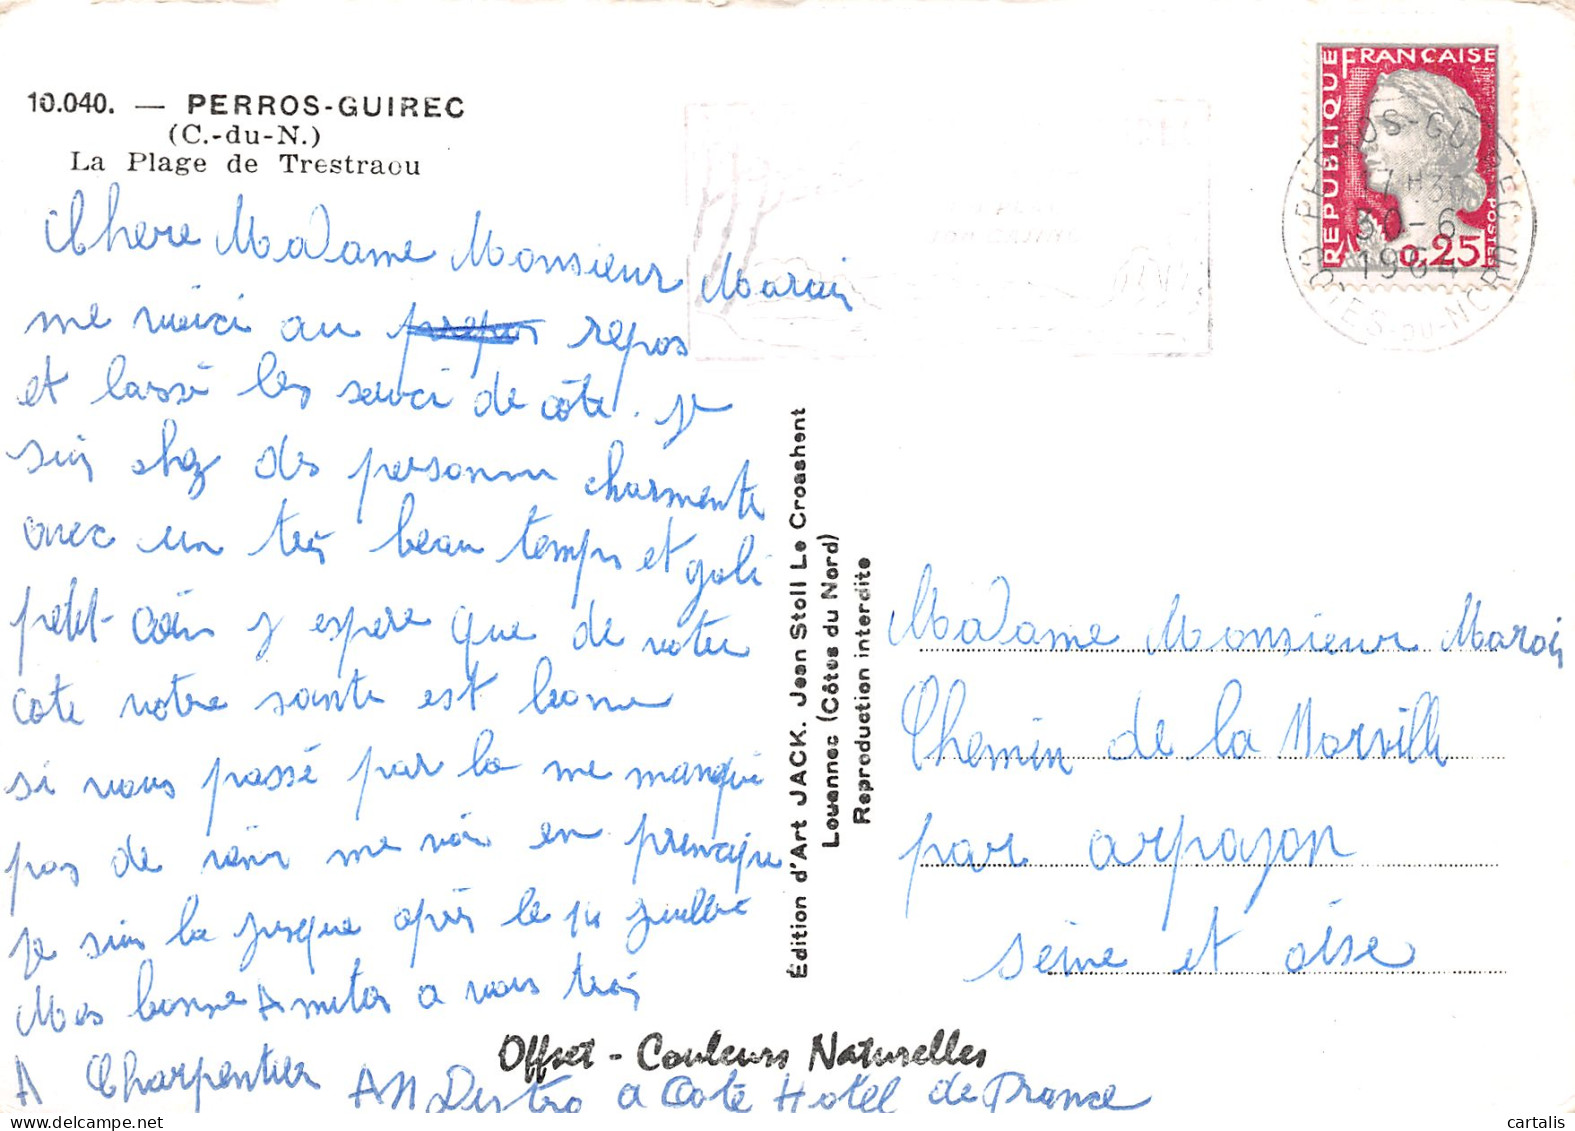 10.040. — PERROS-GUIREC
(C.-du-N.)
La Plage de Trestraou
Chere Madame Monsieur Marais
me voici au repos
et lassé les souci de côte. Je
suis chez des personnes charmente
avec un très beau temps et goli
petit coin j espere que de votre
cote votre sante est bonne
si vous passé par la me manqué
pas de venir me voir en
je suis la jusque après le 14 juillet
Mes bonne Amités a vous trois
A Charpentier
a Coté Hotel de France
Offset - Couleurs Naturelles
Édition d'Art JACK. Jean Stoll Le Croashent
Louannec (Côtes du Nord)
Reproduction interdite
RÉPUBLIQUE FRANÇAISE
POSTES
0,25
PERROS-GUIREC
17 H 30
30-6
1964
CÔTES-DU-NORD
Madame Monsieur Marais
Chemin de la Morville
par arpajon
seine et oise
cartalis